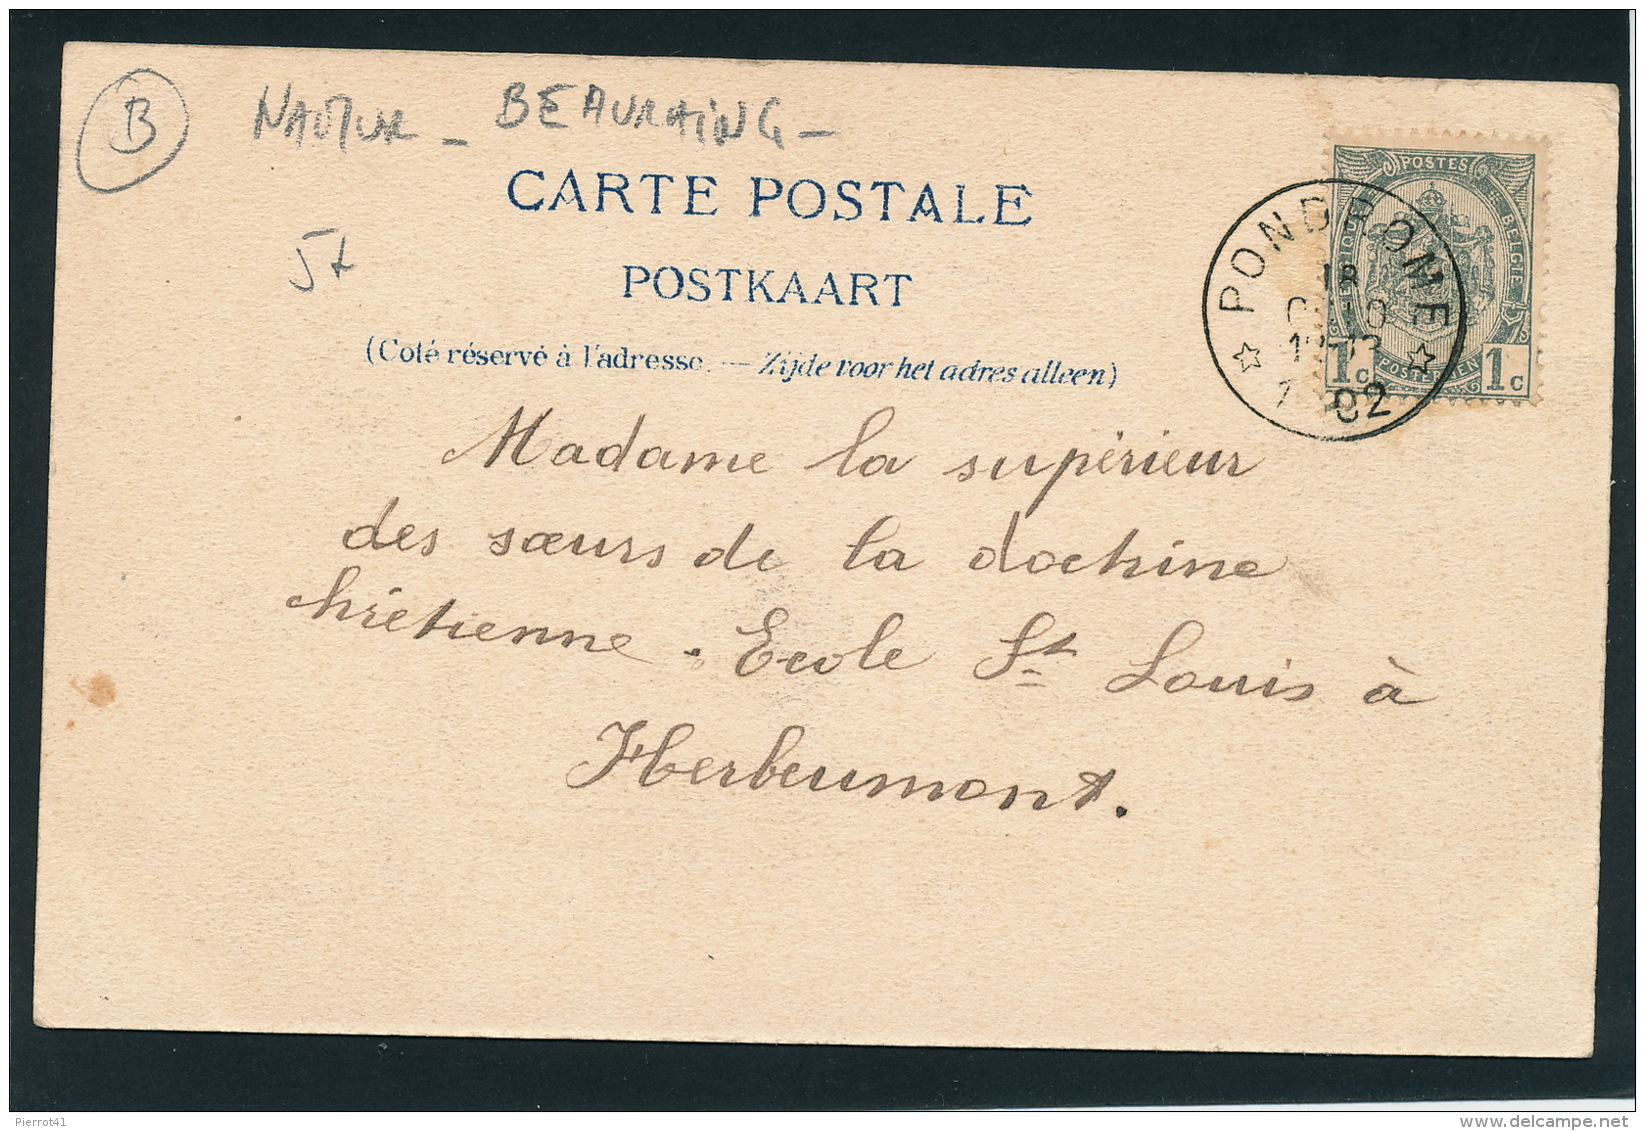 B
NAMUR - BEAURAING -
CARTE POSTALE
5t
POSTKAART
(Coté réservé à l'adresse. — Zijde voor het adres alleen)
POSTES
DE BELGIE
POSTERIJEN
1c 1c
PONDROME
18
82
Madame la supérieur
des sœurs de la doctrine
chrétienne. Ecole St Louis à
Herbeumont.
Pierrot41
http://www.delcampe.net